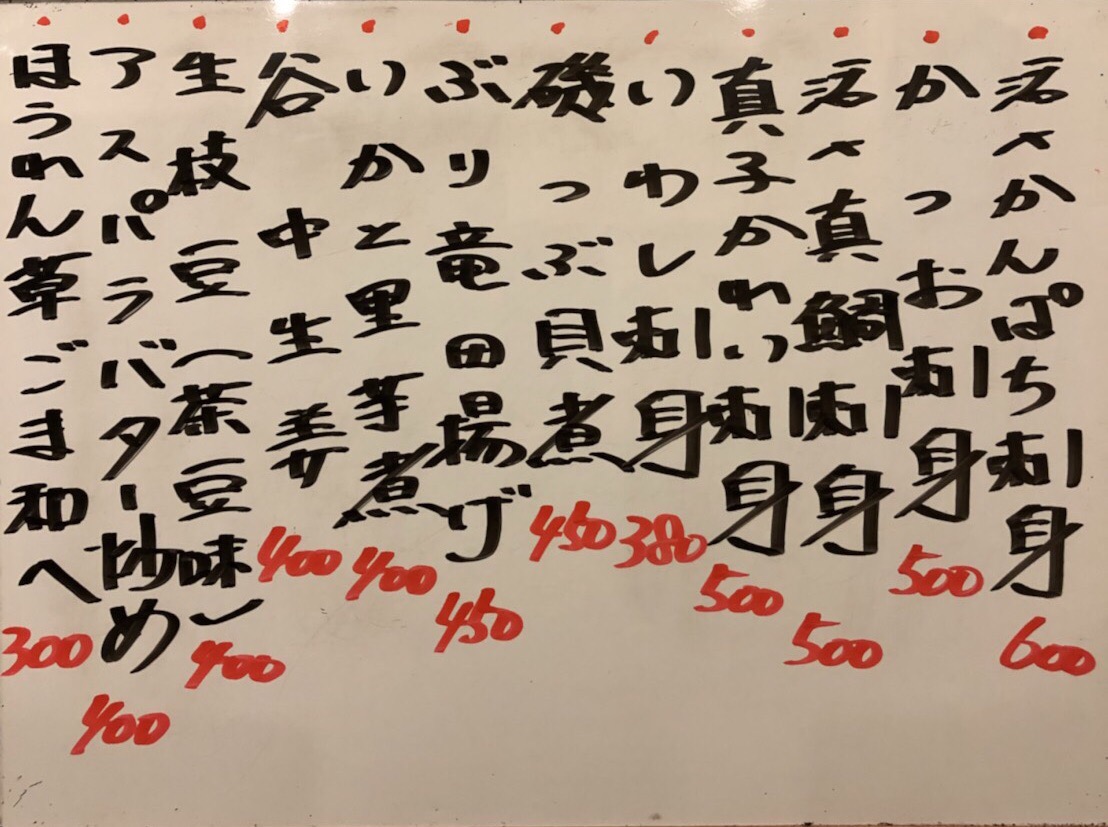 活〆かんぱち刺身 600
かつお刺身 500
活〆真鯛刺身 500
真子かれい刺身 500
いわし刺身 380
磯つぶ貝煮 450
ぶり竜田揚げ 450
いかと里芋煮 400
谷中生姜 400
生枝豆(茶豆味) 400
アスパラバター炒め 400
ほうれん草ごま和へ 300